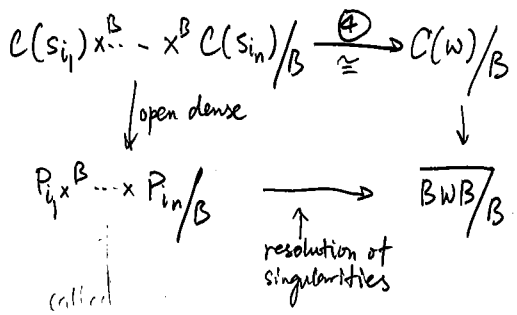 C(s_{i_1}) ×^B ··· - ×^B C(s_{i_n})/B ④ ≅ C(w)/B
open dense
P_{i_1} ×^B ··· × P_{i_n}/B \overline{BwB}/B
resolution of
singularities
called